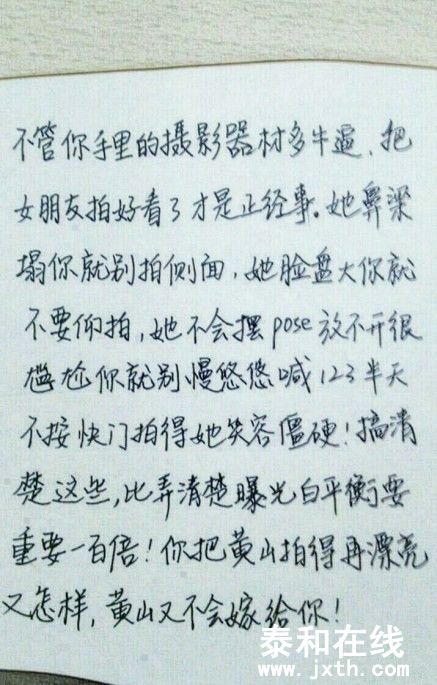 不管你手里的摄影器材多牛逼，把
女朋友拍好看了才是正经事。她鼻梁
塌你就别拍侧面，她脸盘大你就
不要仰拍，她不会摆pose放不开很
尴尬你就别慢悠悠喊123半天
不按快门拍得她笑容僵硬！搞清
楚这些，比弄清楚曝光白平衡要
重要一百倍！你把黄山拍得再漂亮
又怎样，黄山又不会嫁给你！
泰和在线
www.jxth.com